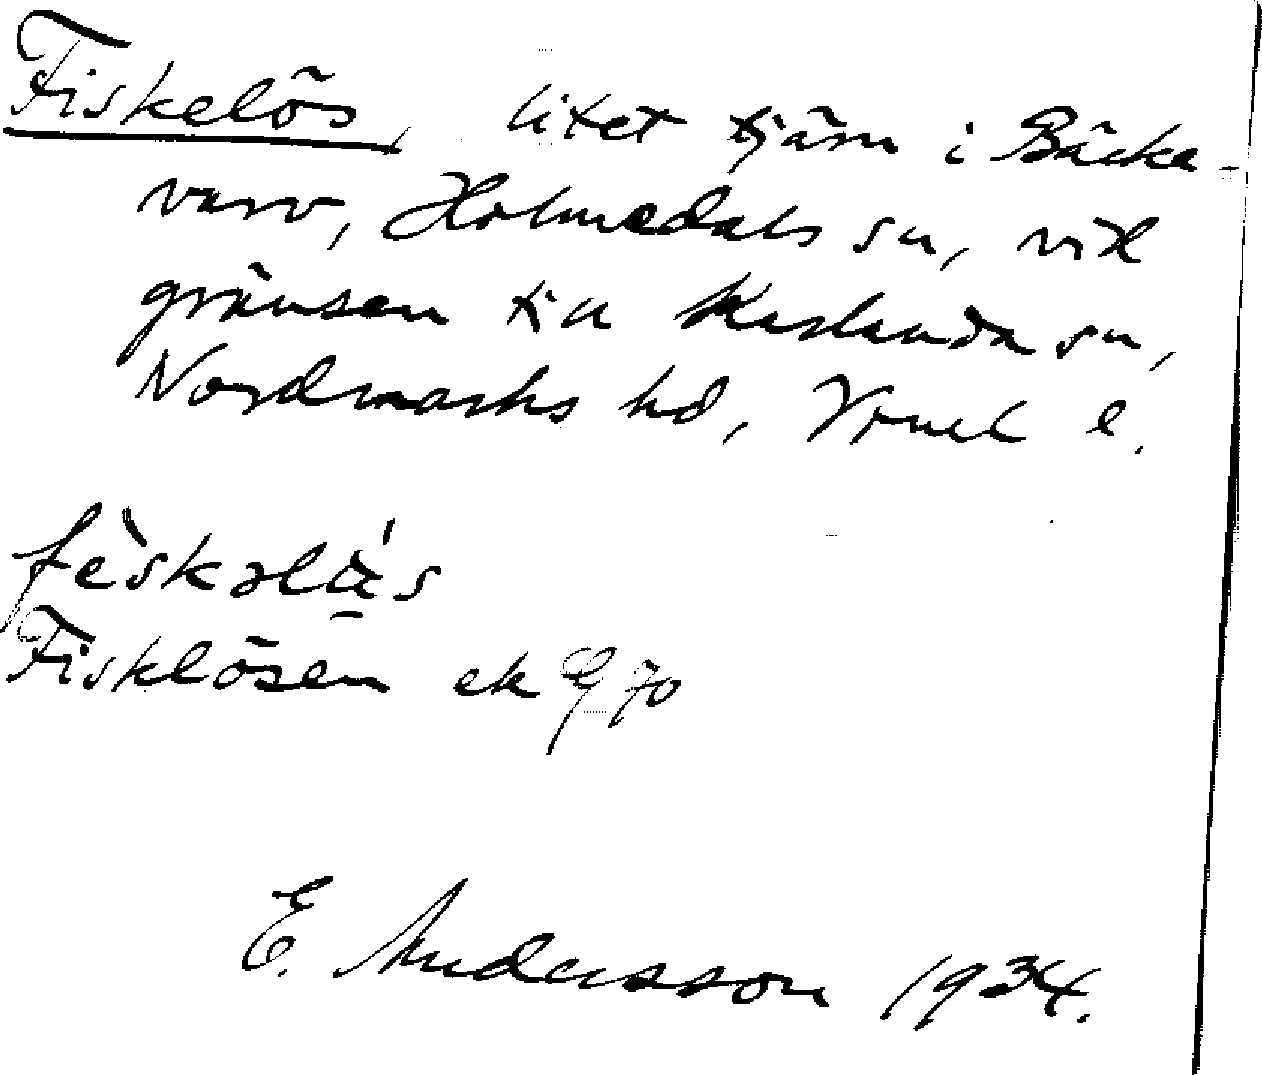 Fiskelös, litet tjärn i Bäcka-
varv, Holmedals sn, vid
gränsen till Karlanda sn,
Nordmarks hd, Vrml l.
fèskəlö̀s
Fisklösen ek 9 70
E. Andersson 1934.